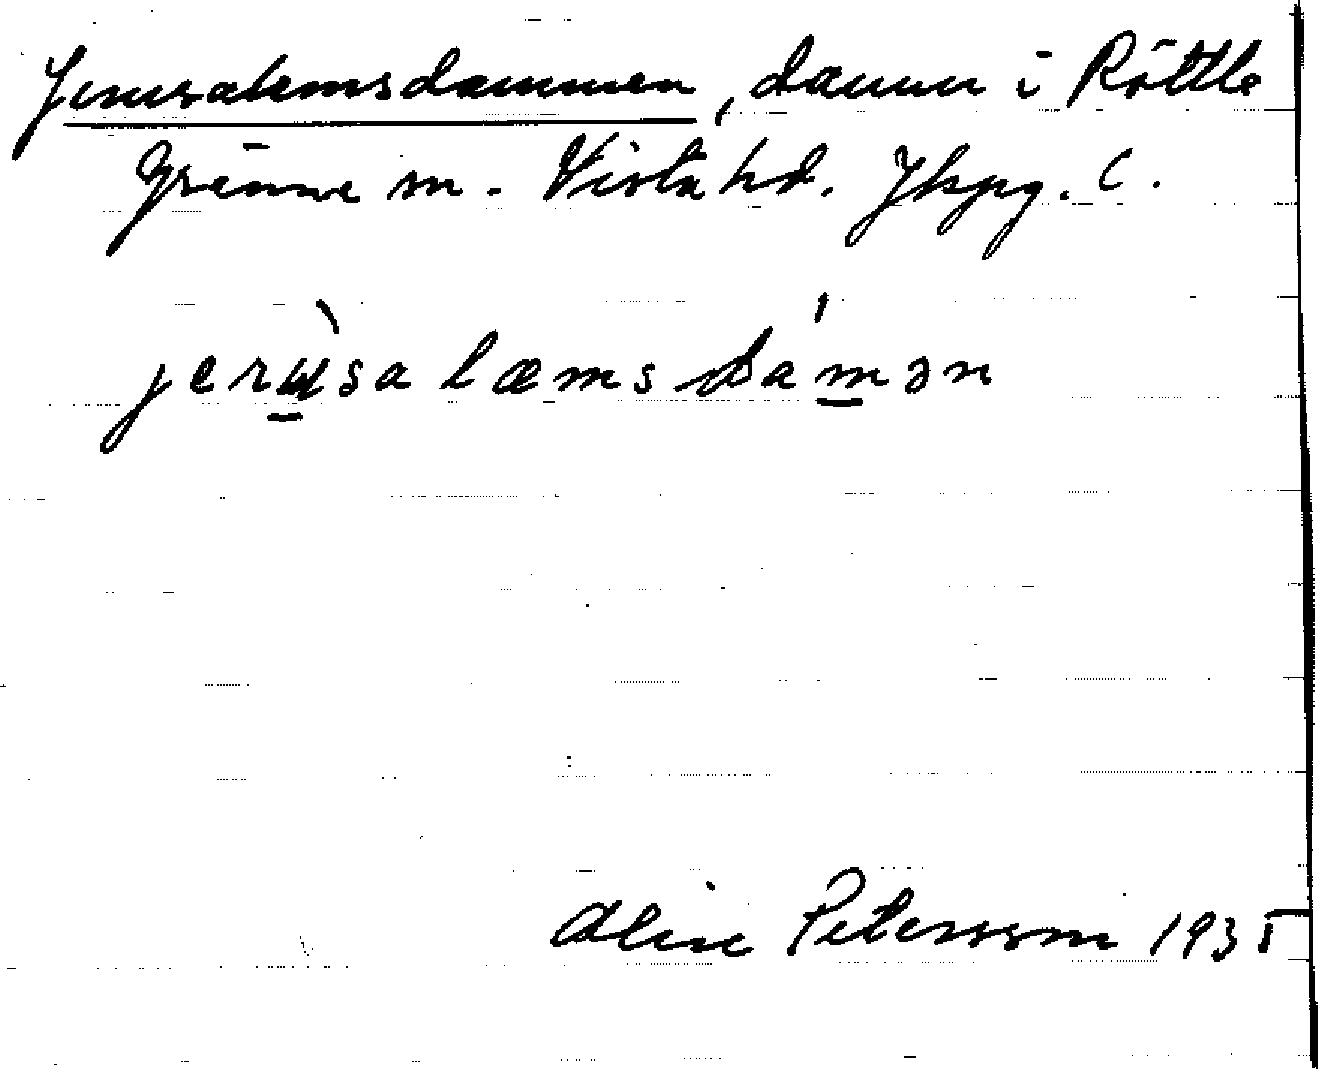 Jerusalemsdammen, damm i Röttle
Gränna sn. Vista hd. Jkpg. l.
jerùsalæmsdámən
Aline Petersson 1935